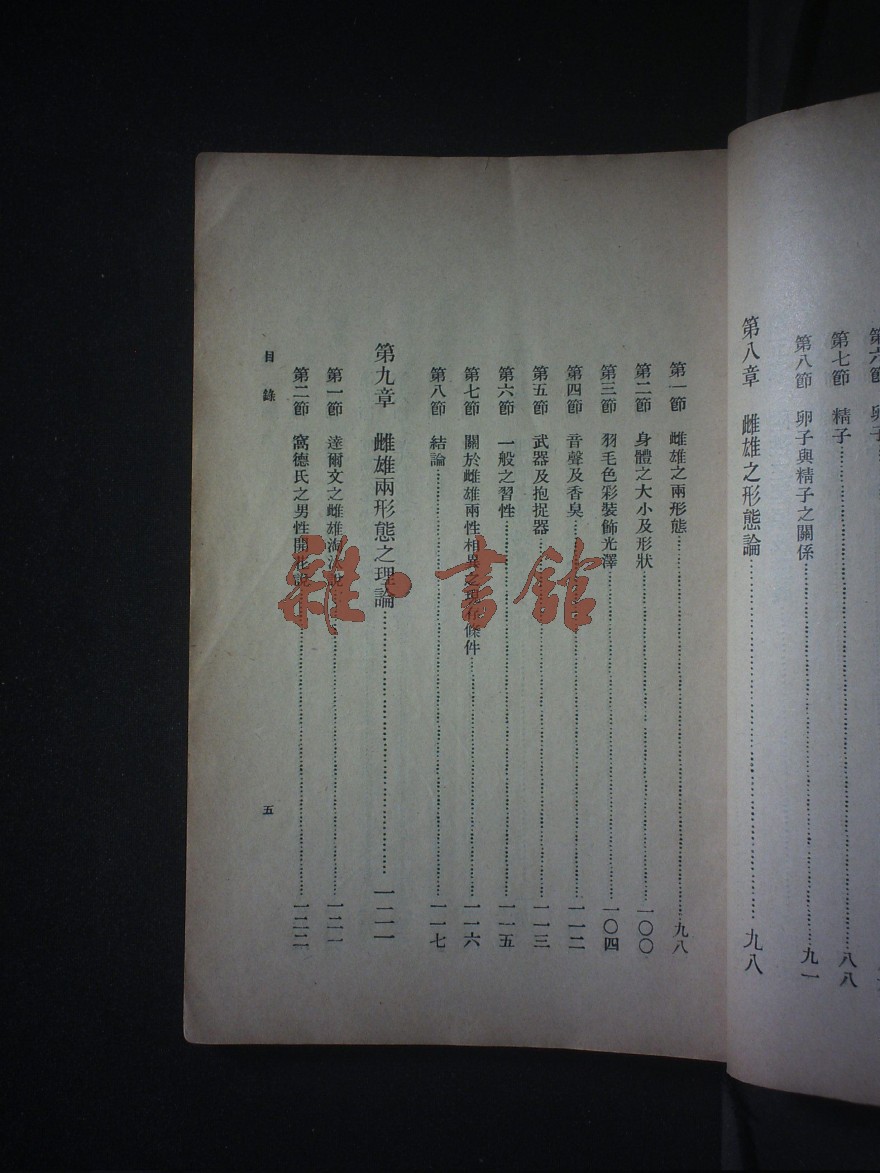 第六節 卵子
第七節 精子……八八
第八節 卵子與精子之關係……九一
第八章 雌雄之形態論……九八
第一節 雌雄之兩形態……九八
第二節 身體之大小及形狀……一〇〇
第三節 羽毛色彩裝飾光澤……一〇四
第四節 音聲及香臭……一一二
第五節 武器及抱捉器……一一三
第六節 一般之習性……一一五
第七節 關於雌雄兩性相異之現存條件……一一六
第八節 結論……一一七
第九章 雌雄兩形態之理論……一二一
第一節 達爾文之雌雄淘汰說……一二一
第二節 窩德氏之男性開花說……一二二
目錄
五
雜·書館